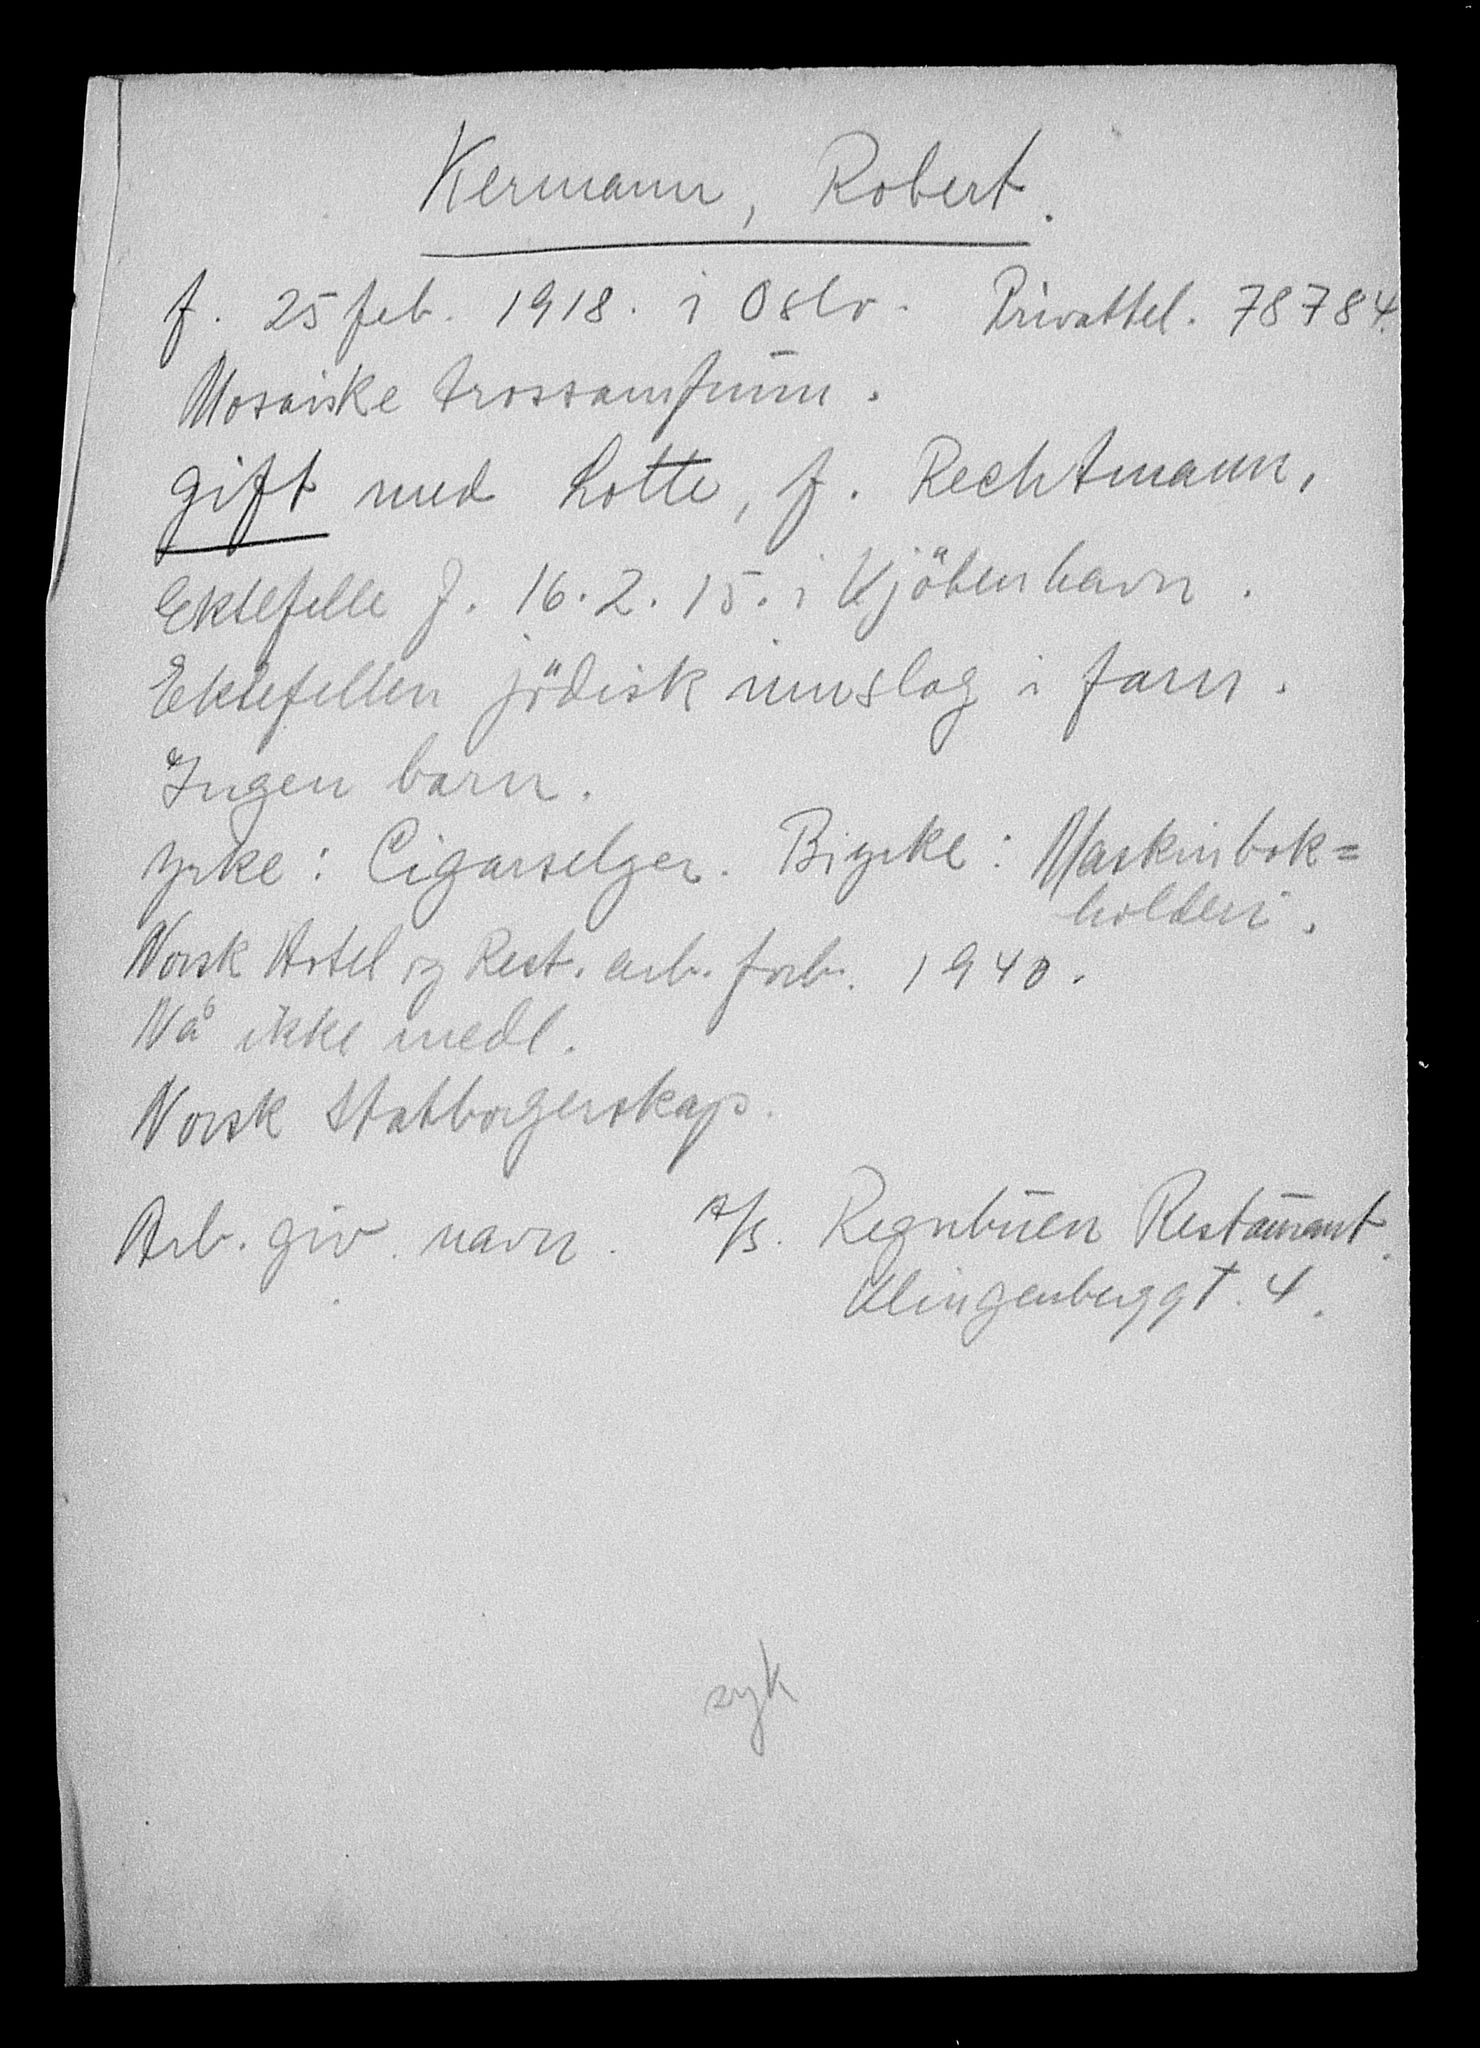 Kermann, Robert.
f. 25 feb. 1918. i Oslo. Privattel. 78784.
Mosaiske trossamfunn.
gift med Lotte, f. Rechtmann,
Ektefelle f. 16.2.15. i Kjöbenhavn.
Ektefellen jödisk innslag i fam.
Ingen barn.
yrke: Cigarselger. Biyrke: Maskinbok=
holderi.
Norsk Hotel og Rest. arb. forb. 1940.
Nå ikke medl.
Norsk Statborgerskap.
Arb. giv. navn. A/S. Regnbuen Restaurant.
Klingenberggt. 4.
syk